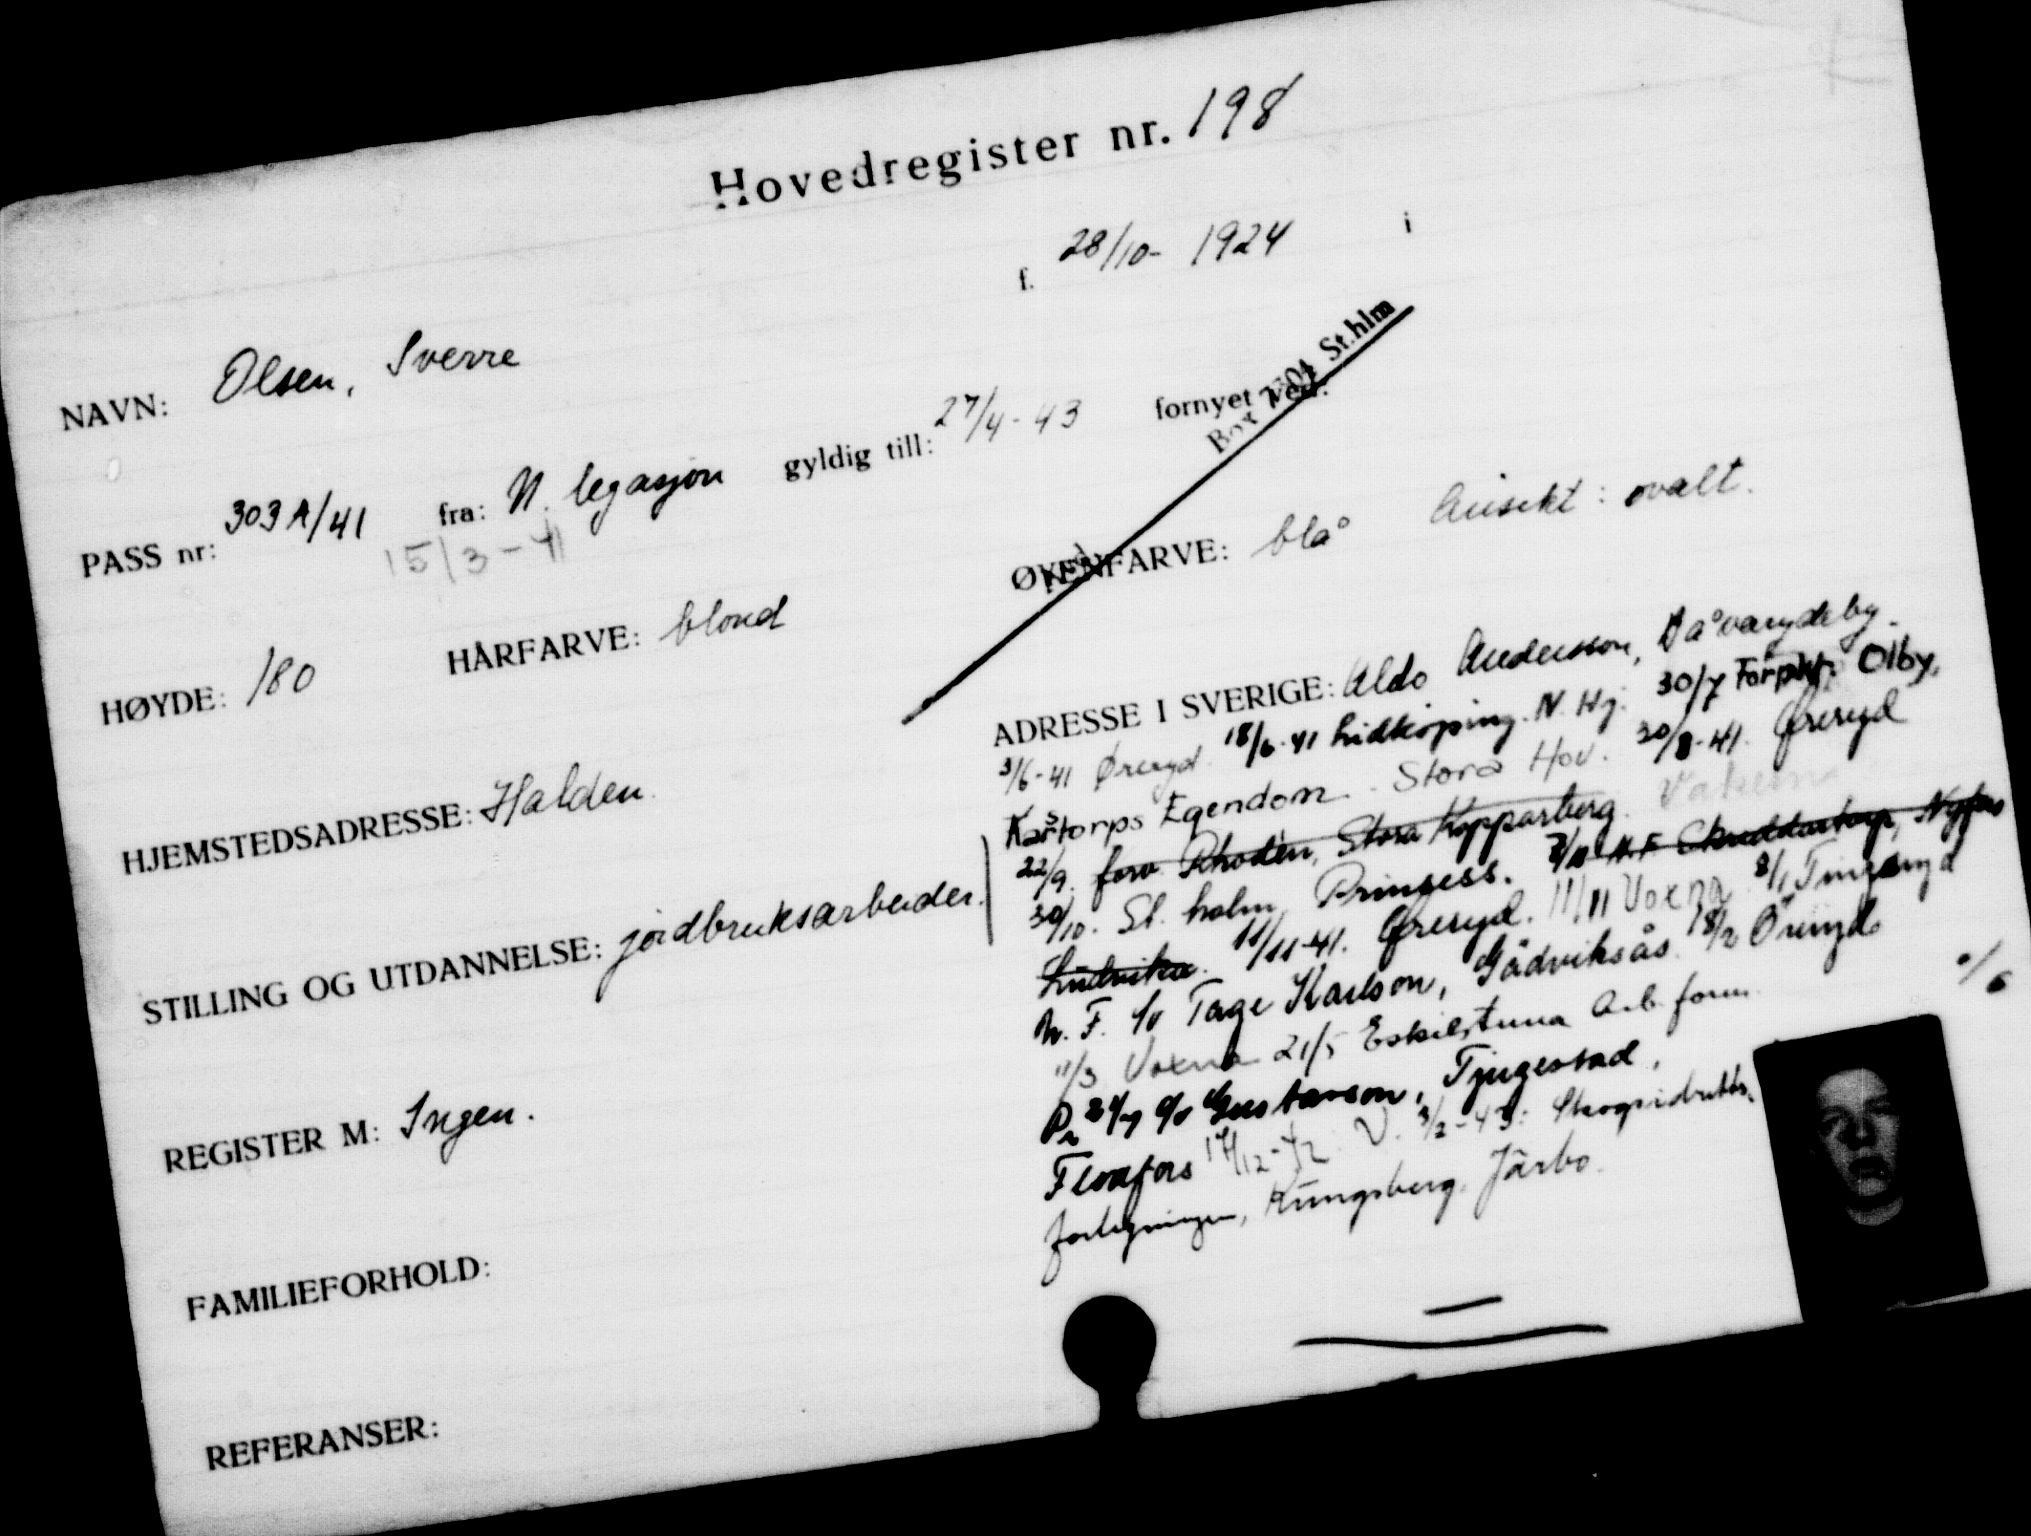 Hovedregister nr. 198
f. 28/10- 1924 i
NAVN: Olsen, Sverre
PASS nr: 303 A/41 fra: N. legasjon gyldig till: 27/4-43 fornyet ved:
15/3-41
Box 7304 St.hlm
HØYDE: 180 HÅRFARVE: blond ØYENFARVE: blå Ansikt: ovalt.
HJEMSTEDSADRESSE: Halden.
ADRESSE I SVERIGE: Aldo Andersson,
3/6-41 Øreryd. 18/6-41 Lidköping. N. Hj. 30/7 Olby,
Kartorps Egendom. Stora Hov. 30/8-41. Øreryd
22/9. Rhodén, Stora Kopparberg.
30/10. St. holm, Prinsess.
Ludvika. 11/11-41. Øreryd. 11/11 Voxna 8/1 Tingsryd
N. F. Tage Karlson, Gädviksås. 18/2 Öreryd.
11/3 Voxna 21/5 Eskilstuna Arb. form.
Gustavson, Tjugestad,
17/12-42 V. 3/2-43: Skogsidretts.
forlegningen, Kungsberg, Järbo.
STILLING OG UTDANNELSE: jordbruksarbeider.
REGISTER M: Ingen.
FAMILIEFORHOLD:
REFERANSER: